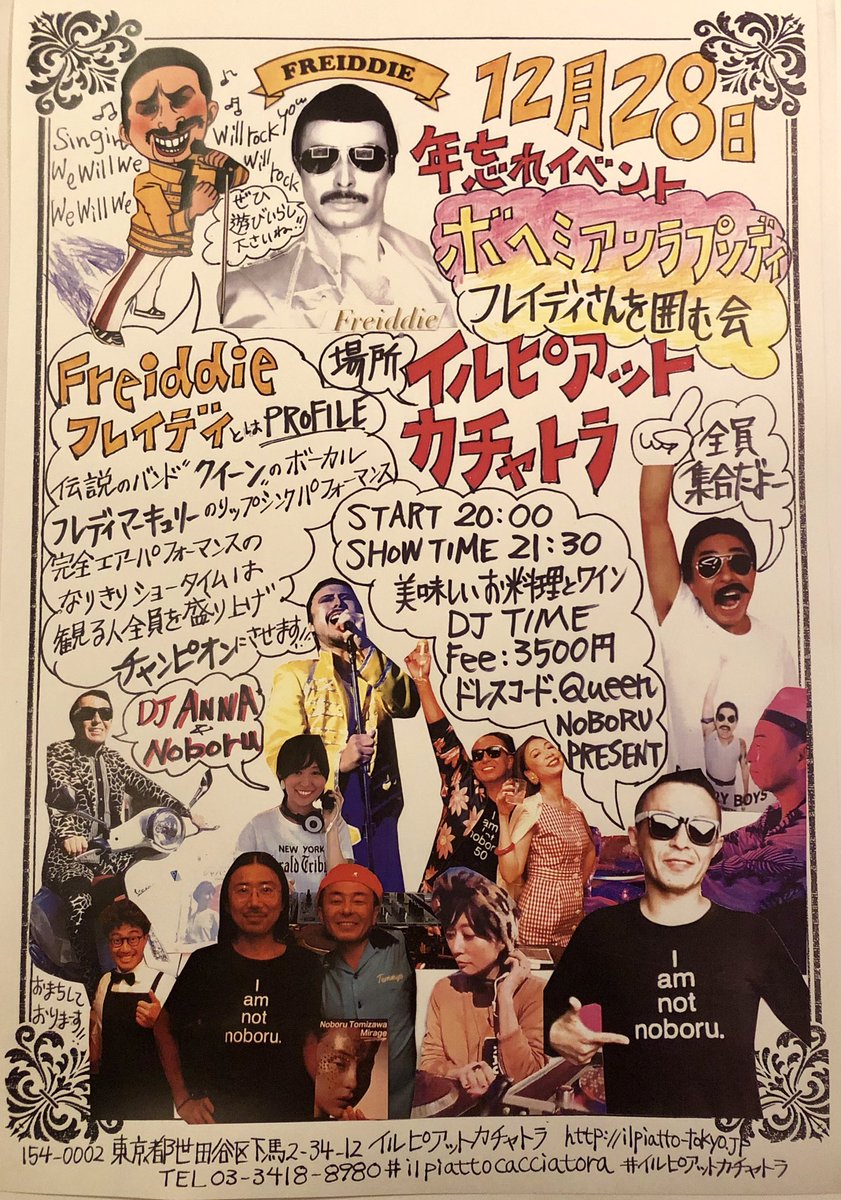 FREIDDIE
12月28日
年忘れイベント
ボヘミアンラプソディ
フレイディさんを囲む会
Singin
We Will We
We Will We
Will rock you
Will rock
ぜひ
遊びいらし
下さいね!!
Freiddie
Freiddie
フレイディとは PROFILE
伝説のバンド"クイーン"のボーカル
フレディマーキュリーのリップシンクパフォーマンス
完全エアーパフォーマンスの
なりきりショータイムは
観る人全員を盛り上げ
チャンピオンにさせます!!
場所
イルピアット
カチャトラ
全員
集合だよー
START 20:00
SHOW TIME 21:30
美味しいお料理とワイン
DJ TIME
Fee:3500円
ドレスコード.Queen
NOBORU
PRESENT
DJ ANNA
&
Noboru
NEW YORK
rald Tribu
I
am
not
noboru
so
RY BOYS
I
am
not
noboru.
Tommys
Noboru Tomizawa
Mirage
I
am
not
noboru.
おまちして
おります!!
154-0002 東京都世田谷区下馬2-34-12 イルピアットカチャトラ http://ilpiatto-tokyo.jp
TEL 03-3418-8980 #ilpiattocacciatora #イルピアットカチャトラ